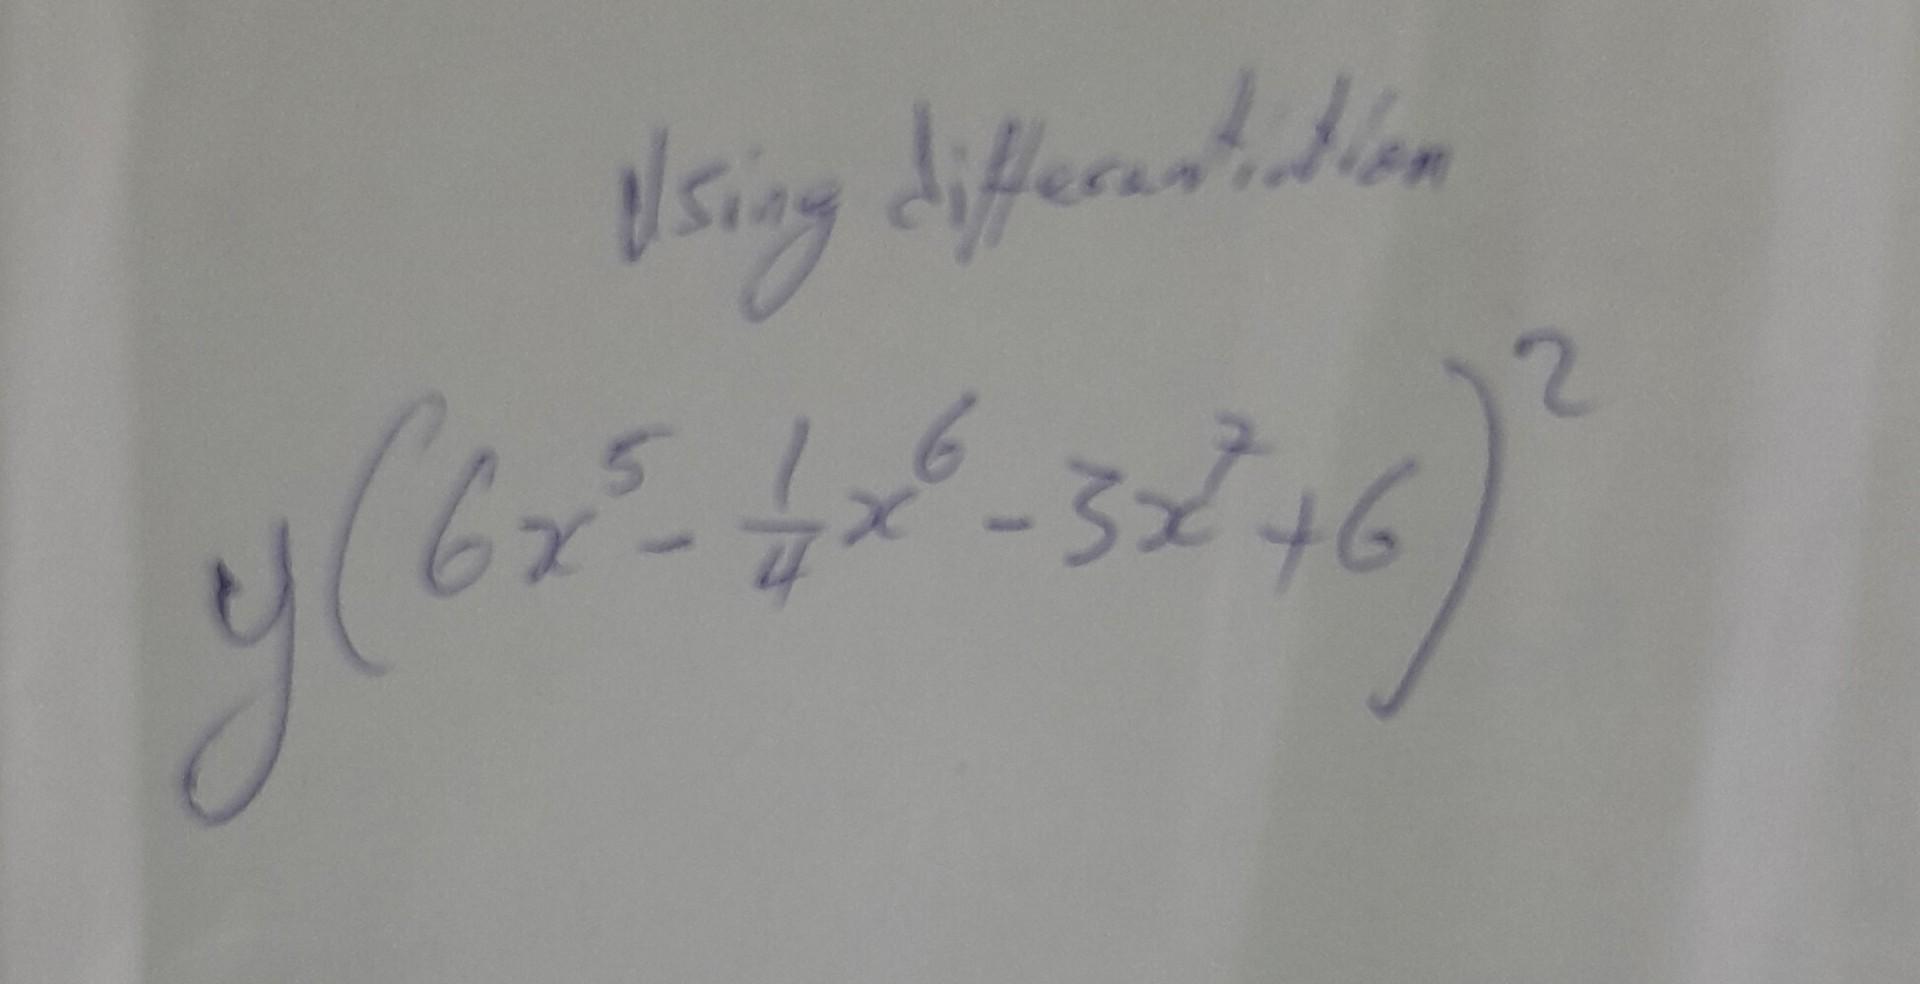 Using differentiation
y(6x⁵ - 1/4 x⁶ - 3x⁷ + 6)²